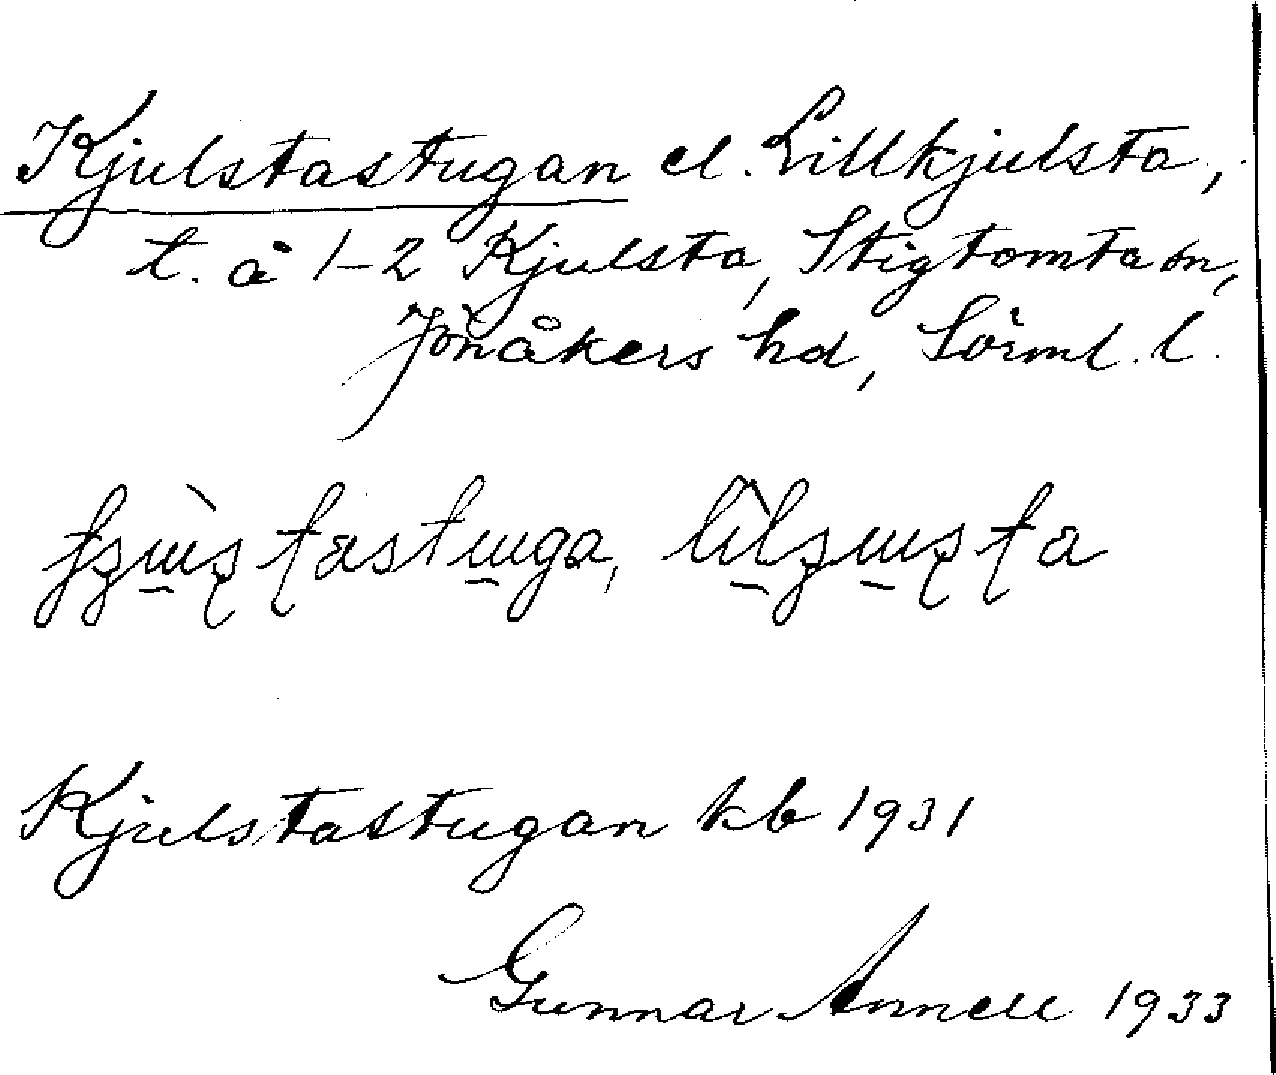 Kjulstastugan el. Lillkjulsta,
t. å 1-2 Kjulsta, Stigtomta sn,
Jönåkers hd, Sörml. l.
Kjulstastugan kb 1931
Gunnar Annell 1933